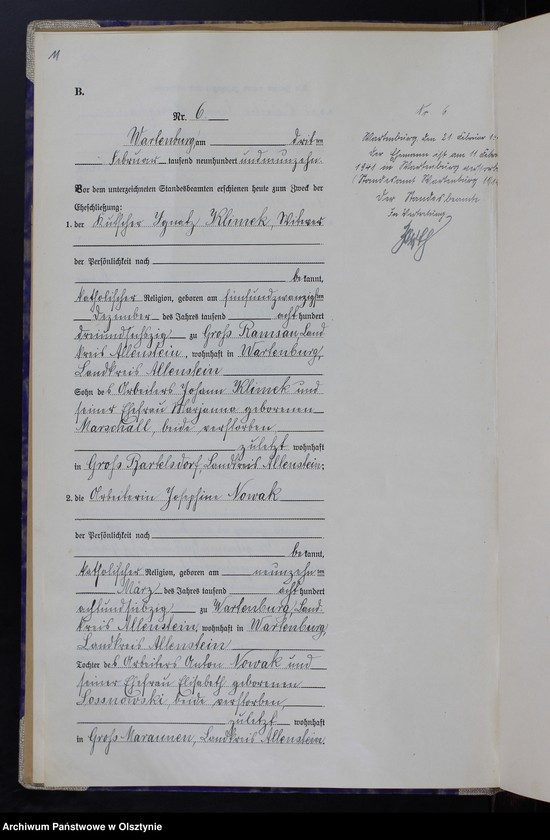 11
B.
Nr. 6
Wartenburg am dritten
Februar tausend neunhundert undneunzehn.
Vor dem unterzeichneten Standesbeamten erschienen heute zum Zweck der
Eheschließung:
1. der Kutscher Ignatz Klimek, Witwer
der Persönlichkeit nach
bekannt,
katholischer Religion, geboren am fünfundzwanzigsten
Dezember des Jahres tausend acht hundert
dreiundsechzig zu Groß Ramsau, Land
kreis Allenstein, wohnhaft in Wartenburg,
Landkreis Allenstein
Sohn des Arbeiters Johann Klimek und
seiner Ehefrau Marjanna geborenen
Marschall, beide verstorben
zuletzt wohnhaft
in Groß Bartelsdorf, Landkreis Allenstein;
2. die Arbeiterin Josephine Nowak
der Persönlichkeit nach
bekannt,
katholischer Religion, geboren am neunzehnten
März des Jahres tausend acht hundert
achtundsiebzig zu Wartenburg, Land
kreis Allenstein, wohnhaft in Wartenburg,
Landkreis Allenstein
Tochter des Arbeiters Anton Nowak und
seiner Ehefrau Elisabeth geborenen
Sossnowski, beide verstorben,
zuletzt wohnhaft
in Groß Maraunen, Landkreis Allenstein.
No 6.
Wartenburg den 21 Februar
Der Ehemann ist am 11
1941 in Wartenburg
(Standesamt Wartenburg
Der Standesbeamte
In Vertretung
Archiwum Państwowe w Olsztynie